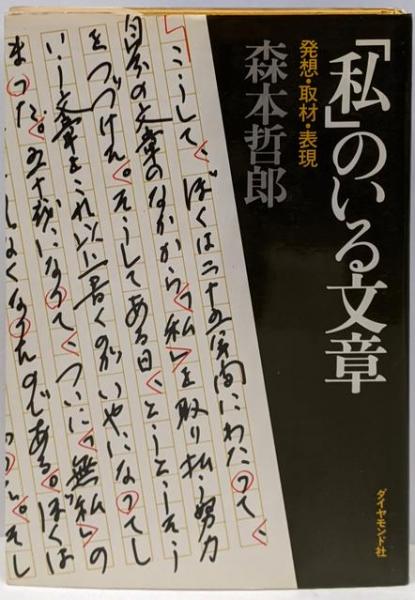 「私」のいる文章
発想・取材・表現
森本哲郎
ダイヤモンド社
こうして、ぼくは二十五年間にわたって、
自分の文章のなかから「私」を取り払う努力
をつづけた。そうしてある日、とうとうそう
いう文章をこれ以上書くのがいやになってし
まった。五十歳になって、ついに「無私」の
しくなったのである。ぼくは